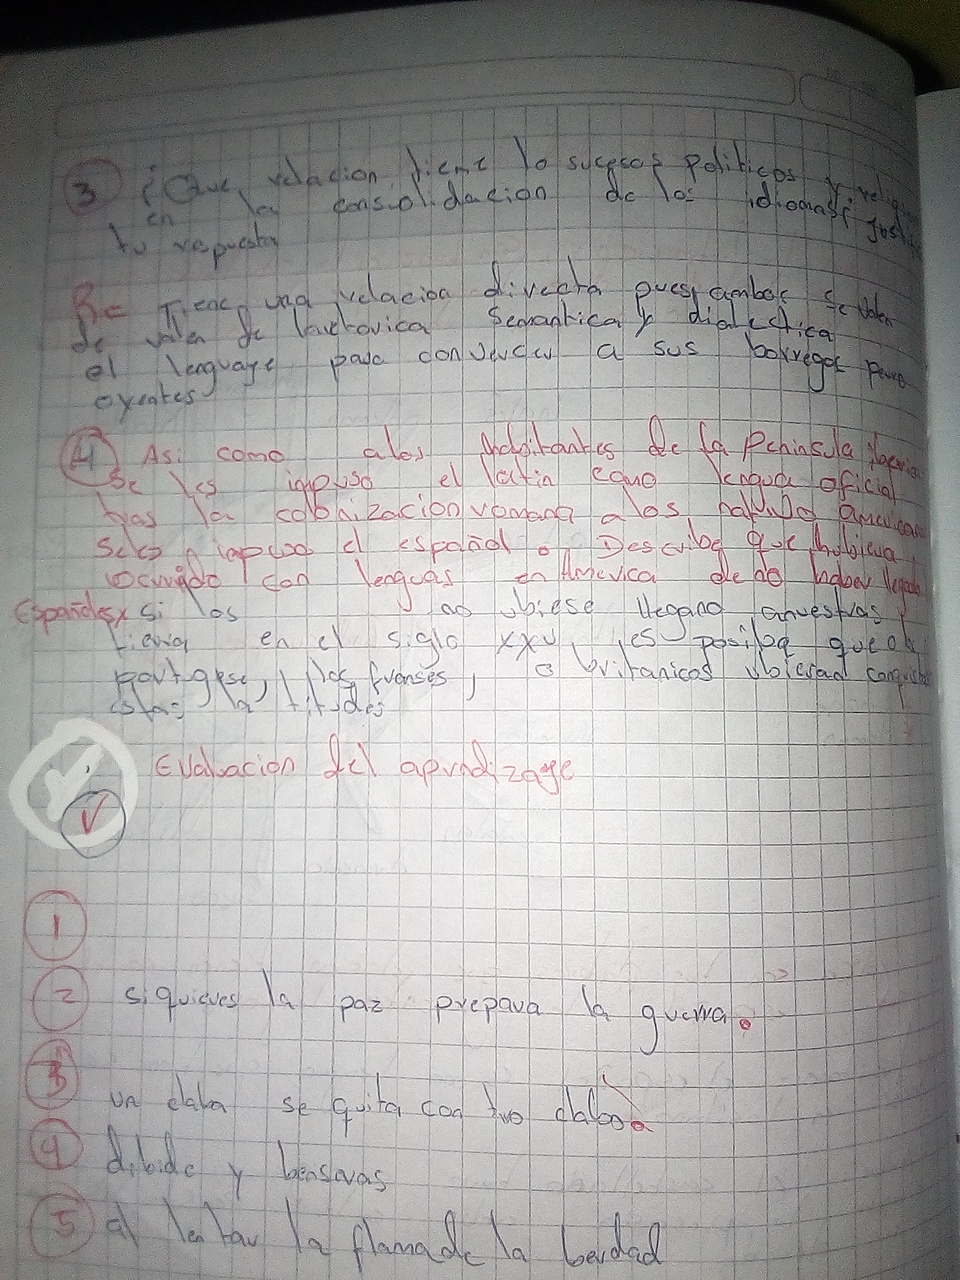 3 ¿Que relacion tiene lo sucesos politicos y
en la consolidacion de los idiomas?
tu repuesta
R= Tiene una relacion directa pues ambos se valen
de valen de semantica y dialectica
el lenguage para convencer a sus borregos pero
oyentes
4 Asi como alos habitantes de la Peninsula
se les impuso el latin como lengua oficial
tras la colonizacion romana a los
impuso el español. Describe que hubiera
ocurrido con lenguas en America de no haber
Españoles si los no ubiese llegano anuestras
tierra en el siglo xxv es posilbq que
portgese, los franses, o britanicos ubierad
estas latitudes
Evaluacion del aprudizage
V
1
2 siquieres la paz prepara la guerra.
3 un clabo se quita con tro clabo
4 dibide y benseras
5 al lentar la flamade la berdad